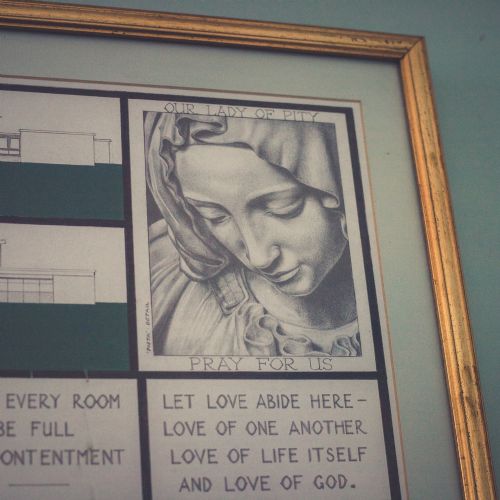 OUR LADY OF PITY
"PIETA" DETAIL
PRAY FOR US
EVERY ROOM
BE FULL
ONTENTMENT
LET LOVE ABIDE HERE –
LOVE OF ONE ANOTHER
LOVE OF LIFE ITSELF
AND LOVE OF GOD.